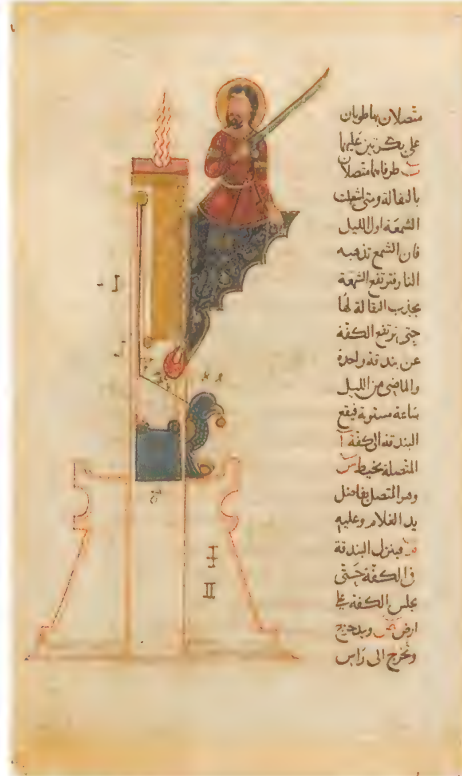 متصلان بها طويان
على بكرتين عليهما
طرفاهما متصلان
بالثقالة ومتى اشعلت
الشمعة اول الليل
فان الشمع تذهبه
النار فترتفع الشمعة
بجذب الثقالة لها
حتى ترتفع الكفة
عن بندقة واحدة
والماضي من الليل
ساعة مستوية فيقع
البندقة الى الكفة
المتصلة بخيط س
وهو المتصل بفاضل
يد الغلام وعليه
فينزل البندقة
في الكفة حتى
يجلس الكفة على
ارض ويدحرج
وتخرج الى راس